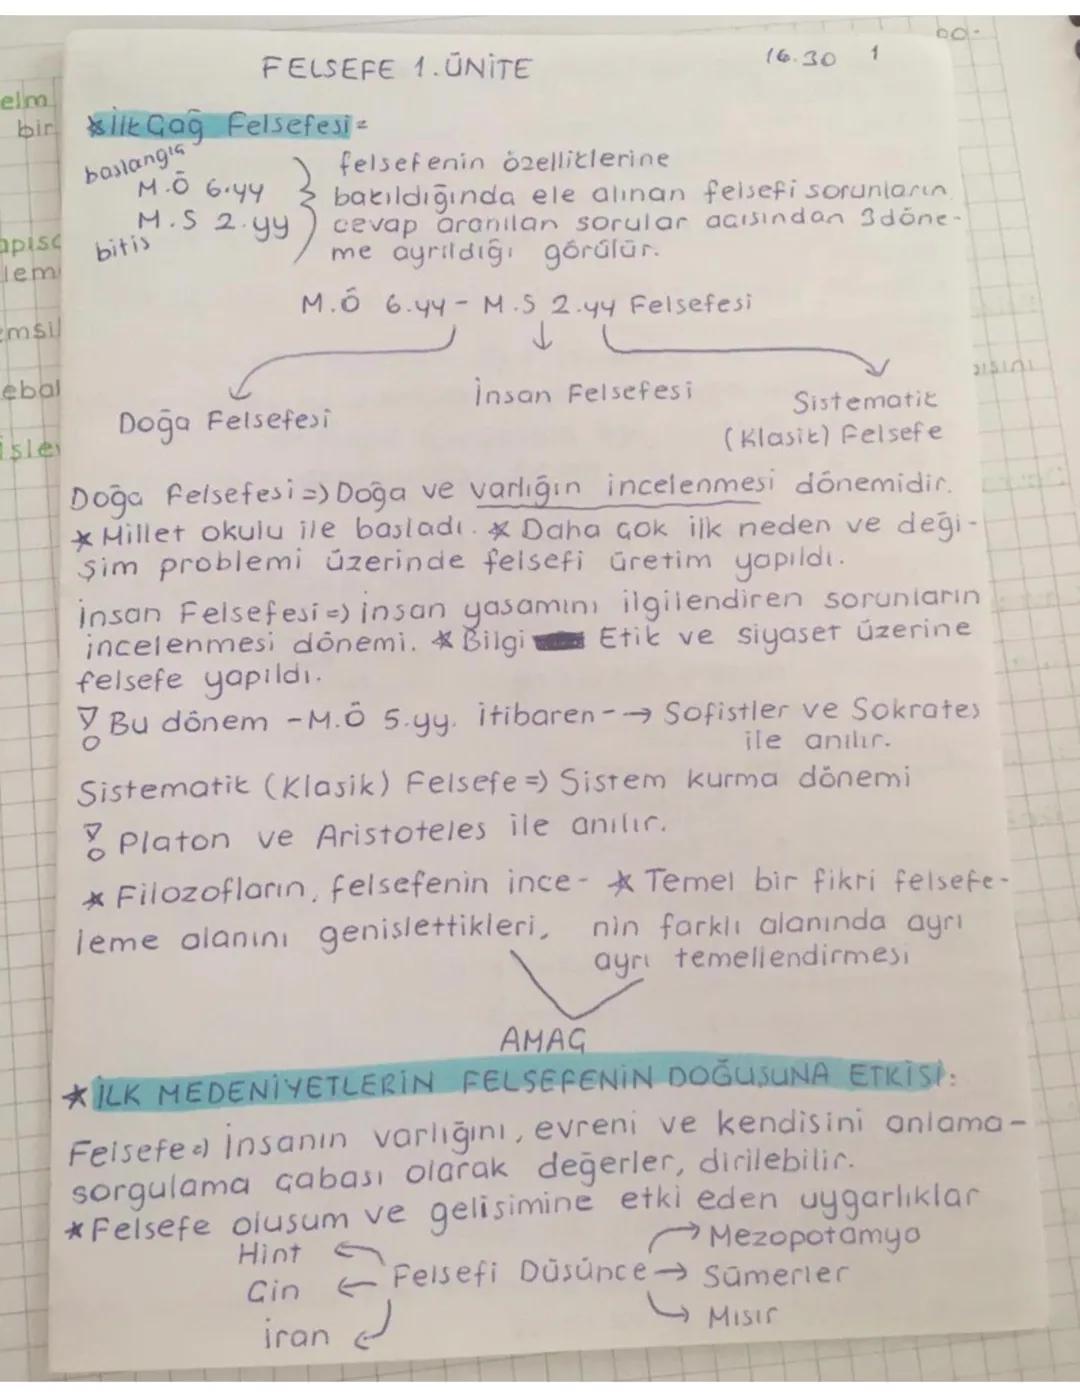 FELSEFE 1.ÜNİTE
16.30 1
*İlk Çağ Felsefesi=
baslangıç
M.Ö 6.yy
M.S 2.yy
bitis
felsefenin özelliklerine
bakıldığında ele alınan felsefi sorunların
cevap aranılan sorular acısından 3 döne-
me ayrıldığı görülür.
M.Ö 6.yy - M.S 2.yy Felsefesi
Doğa Felsefesi
İnsan Felsefesi
Sistematik
(Klasik) Felsefe
Doğa Felsefesi => Doğa ve varlığın incelenmesi dönemidir.
* Millet okulu ile basladı. * Daha çok ilk neden ve deği-
şim problemi üzerinde felsefi üretim yapıldı.
İnsan Felsefesi => insan yasamını ilgilendiren sorunların
incelenmesi dönemi. * Bilgi Etik ve siyaset üzerine
felsefe yapıldı.
! Bu dönem - M.Ö 5.yy. itibaren --> Sofistler ve Sokrates
ile anılır.
Sistematik (Klasik) Felsefe => Sistem kurma dönemi
! Platon ve Aristoteles ile anılır.
* Filozofların, felsefenin ince-
leme alanını genislettikleri,
* Temel bir fikri felsefe-
nin farklı alanında ayrı
ayrı temellendirmesi
AMAÇ
* İLK MEDENİYETLERİN FELSEFENİN DOĞUSUNA ETKİSİ:
Felsefe => İnsanın varlığını, evreni ve kendisini anlama-
sorgulama çabası olarak değerler, dirilebilir.
* Felsefe olusum ve gelisimine etki eden uygarlıklar
Hint
Çin
İran
Felsefi Düsünce
Mezopotamya
Sümerler
Mısır
elm
bir
lem
emsil
ebal
işle